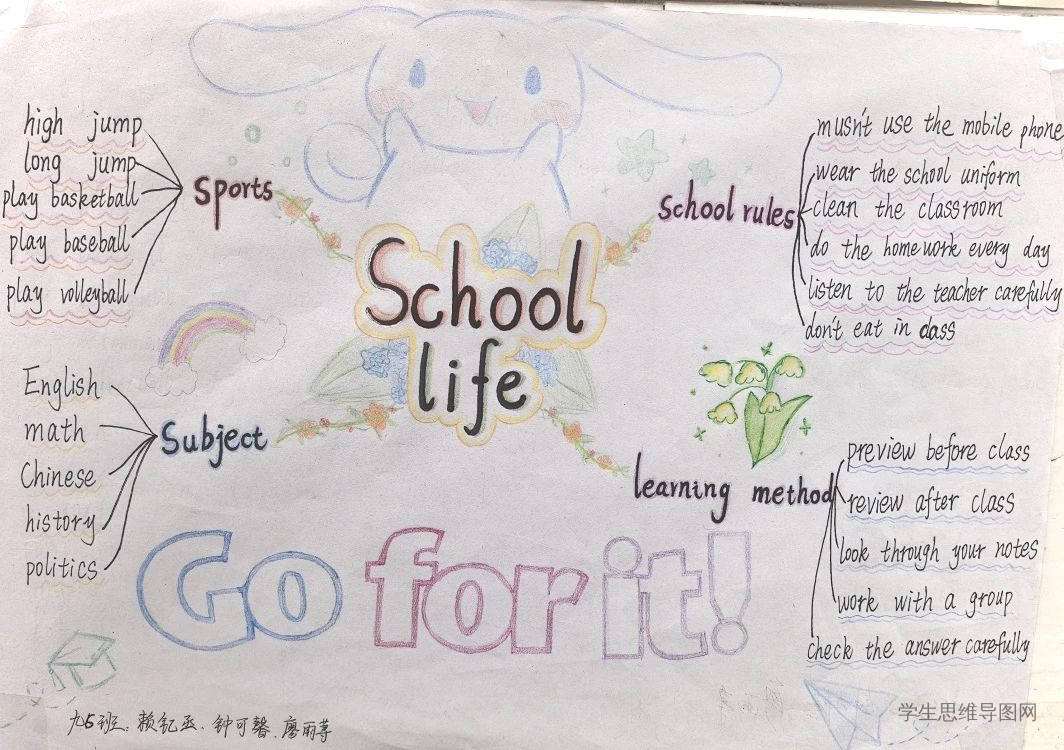 School
life
Sports
high jump
long jump
play basketball
play baseball
play volleyball
School rules
musn't use the mobile phone
wear the school uniform
clean the classroom
do the homework every day
listen to the teacher carefully
don't eat in class
Subject
English
math
Chinese
history
politics
learning method
preview before class
review after class
look through your notes
work with a group
check the answer carefully
Go for it!
九5班: 赖钇丞、钟可馨、廖雨荨
学生思维导图网